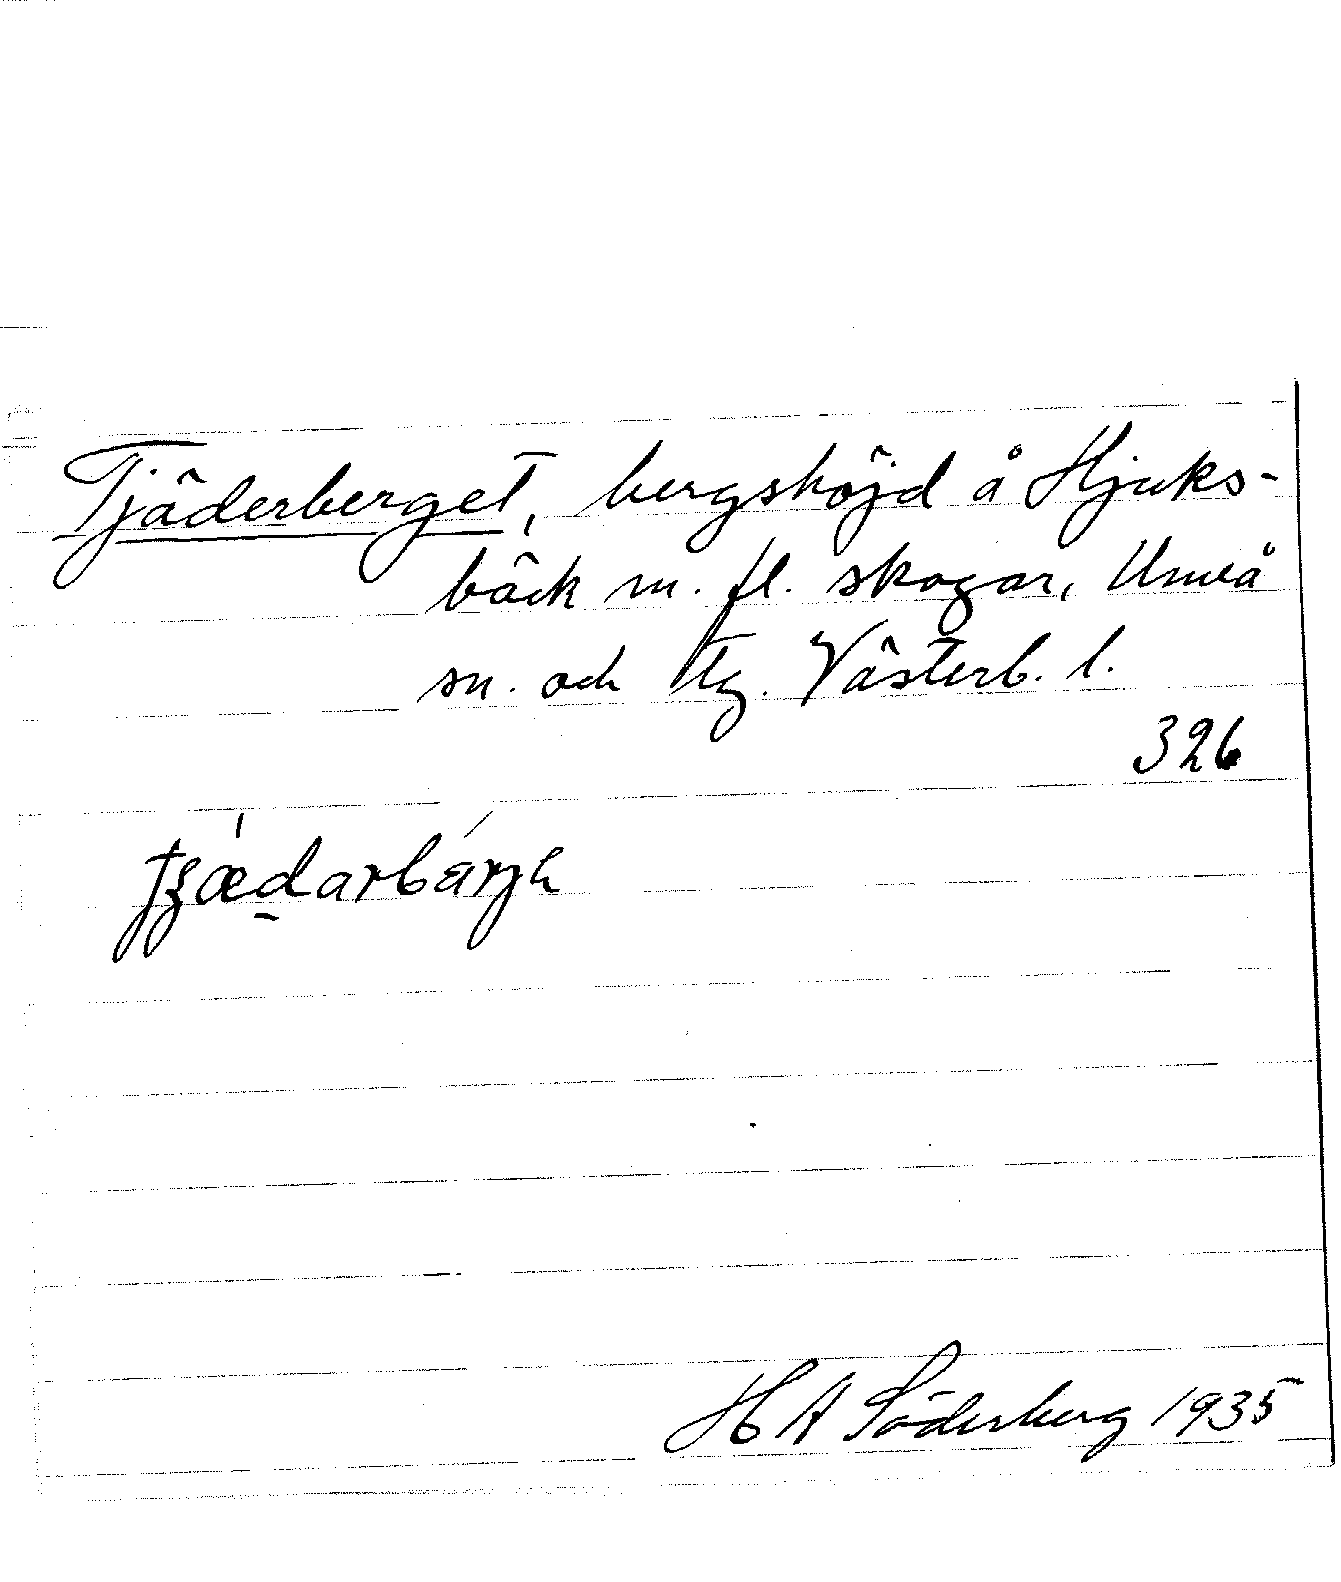 Tjäderberget, bergshöjd å Hjuks-
bäck m. fl. skogar, Umeå
sn. och tg. Västerb. l.
326
H A Söderberg 1935